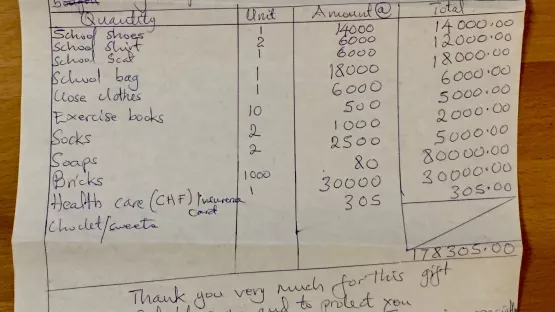 Quantity Unit Amount @ Total
School shoes 1 14000 14000.00
School shirt 2 6000 12000.00
School Scat 1 6000 18000.00
School bag 1 18000 6000.00
Close clothes 1 6000 5000.00
Exercise books 10 500 2000.00
Socks 2 1000 5000.00
Soaps 2 2500 80000.00
Bricks 1000 80 30000.00
Health care (CHF) Insurena card 1 30000 305.00
Choclet/sweets 305
178305.00
Thank you very much for this gift
and to protect you